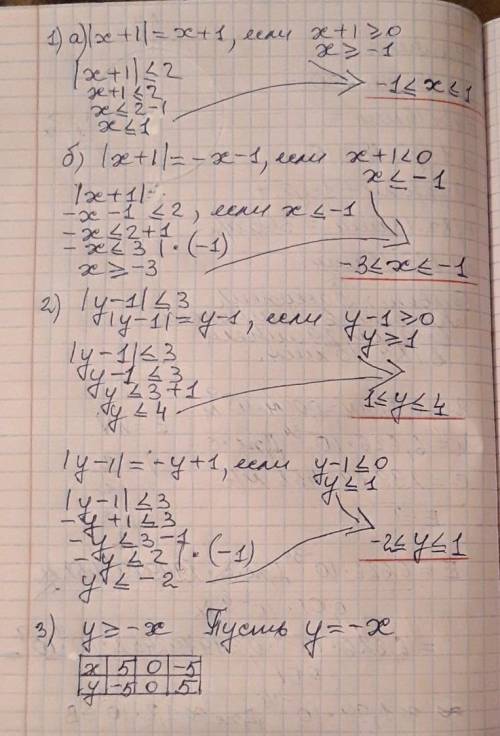 1) а) |x+1| = x+1, если x+1 ≥ 0
x ≥ -1
|x+1| ≤ 2
x+1 ≤ 2
x ≤ 2-1
x ≤ 1
-1 ≤ x ≤ 1
б) |x+1| = -x-1, если x+1 < 0
x ≤ -1
|x+1|
-x-1 ≤ 2, если x ≤ -1
-x ≤ 2+1
-x ≤ 3 | · (-1)
x ≥ -3
-3 ≤ x ≤ -1
2) |y-1| ≤ 3
|y-1| = y-1, если y-1 ≥ 0
y ≥ 1
|y-1| ≤ 3
y-1 ≤ 3
y ≤ 3+1
y ≤ 4
1 ≤ y ≤ 4
|y-1| = -y+1, если y-1 ≤ 0
y ≤ 1
|y-1| ≤ 3
-y+1 ≤ 3
-y ≤ 3-1
-y ≤ 2 | · (-1)
y ≤ -2
-2 ≤ y ≤ 1
3) y ≥ -x Пусть y = -x
x 5 0 -5
y -5 0 5